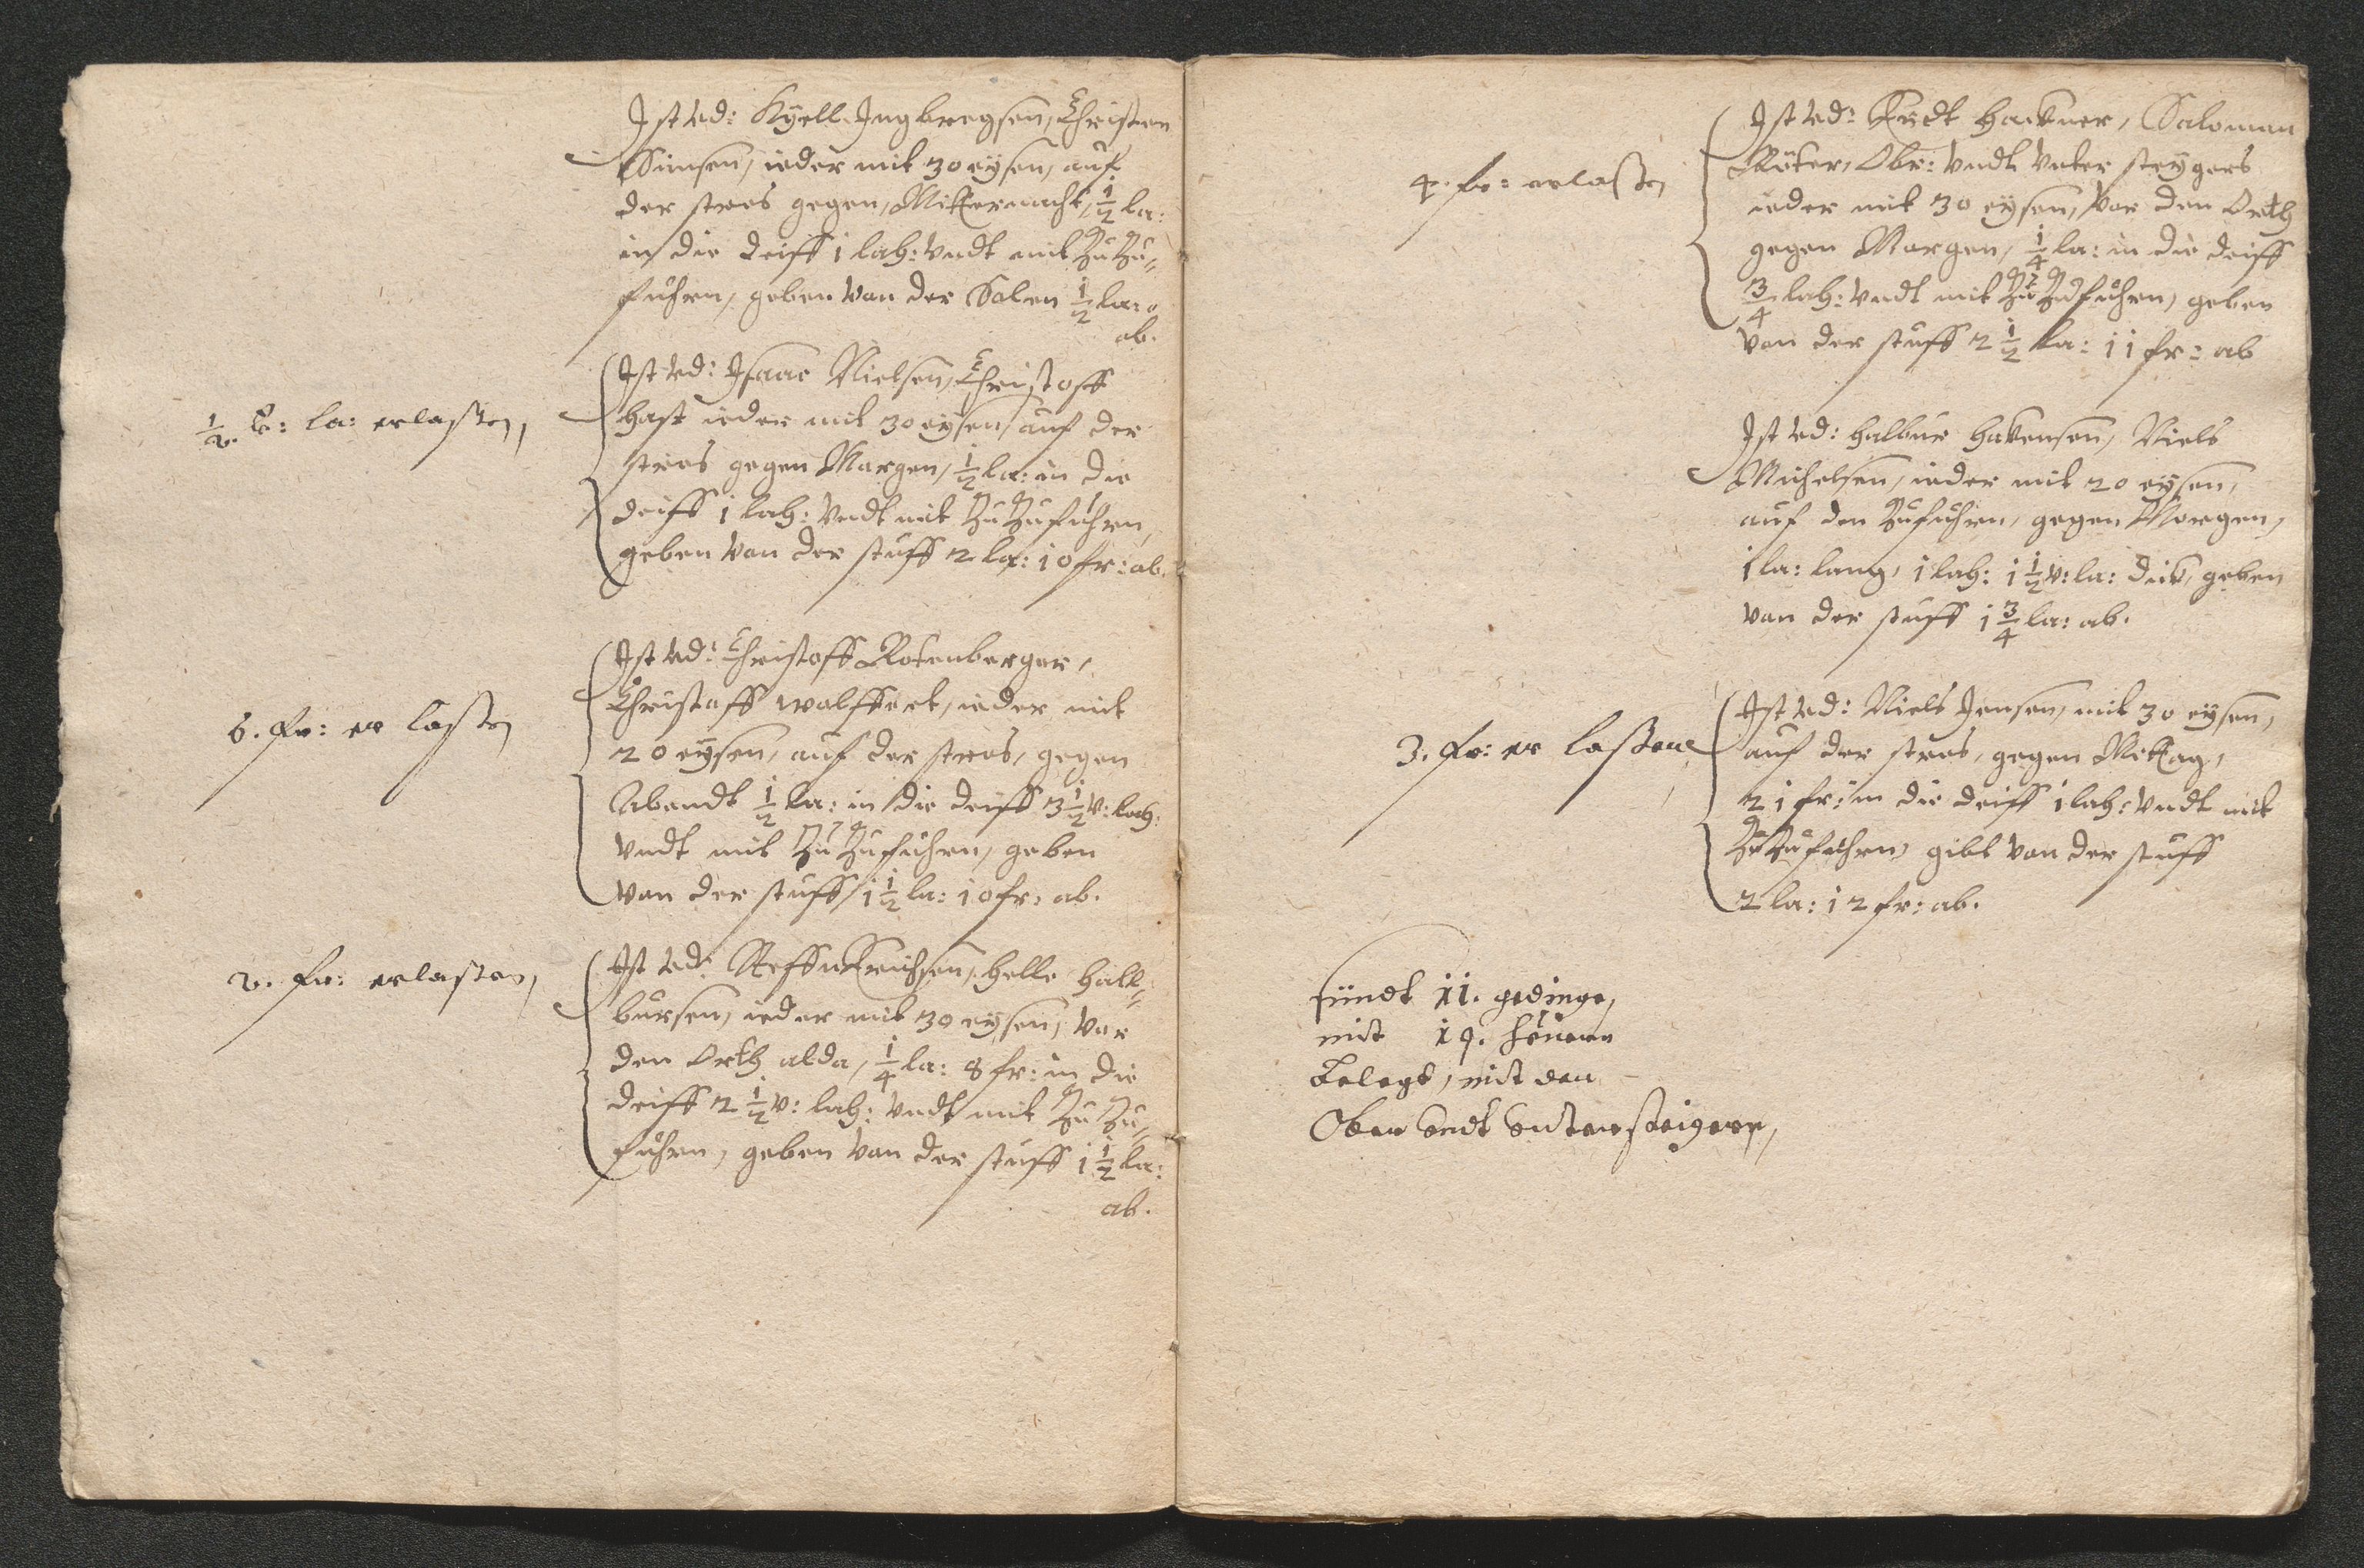 Ist ved: Kyell Ingbregsen, Christen
Simsen, ieder mit 30 eysen, auf
der stros gegen, Mitternacht, 1/2 la:
in die deiff 1 lah: vndt mit Zu Zu=
fuhren, geben von der Solen 1/2 la:
ab.
1/2 v: la: erlassen,
Ist ved: Isaac Nielsen, Christoff
hast ieder mit 30 eysen auf der
stros gegen Morgen, 1/2 la: in die
deiff 1 lah: vndt mit Zu Zufuhren,
geben von der stuff 2 la: 10 fr: ab.
6. fr: er lassen
Ist ved: Christoff Rotenberger,
Christoff wolffert, ieder mit
20 eysen, auf der stros, gegen
Abendt 1/2 la: in die deiff 3 1/2 v: lah:
vndt mit Zu Zufuhren, geben
von der stuff 1 1/2 la: 10 fr: ab.
2. fr: erlassen,
Ist ved: Steffen Erichsen, helle hall=
bursen, ieder mit 30 eysen, vor
den Orth alda, 1/4 la: 8 fr: in die
deiff 2 1/2 v: lah: vndt mit Zu Zu=
fuhren, geben von der stuff 1 1/2 la:
ab.
4. fr: erlassen
Ist ved: hackner, Saloman
Röter, Obr: vndt vnter steygers
ieder mit 30 eysen, vor den Orth
gegen Morgen, 1/4 la: in die deiff
3/4 lah: vndt mit Zu Zufuhren, geben
von der stuff 2 1/2 la: 11 fr: ab
Ist ved: halbur hakensen, Niels
Michelsen, ieder mit 20 eysen,
auf den Zufuhren, gegen Morgen,
1 la: lang, 1 lah: 1 1/2 v: la: dick, geben
von der stuff 1 3/4 la: ab.
3. fr: er lassen
Ist ved: Niels Jensen, mit 30 eysen,
auf der stros, gegen Mittag,
21 fr: in die deiff 1 lah: vndt mit
Zu Zufuhren, gibt von der stuff
2 la: 12 fr: ab.
sindt 11. gedinge,
mit 19. heuern
belegt, mit den
Ober vndt vntersteigern,